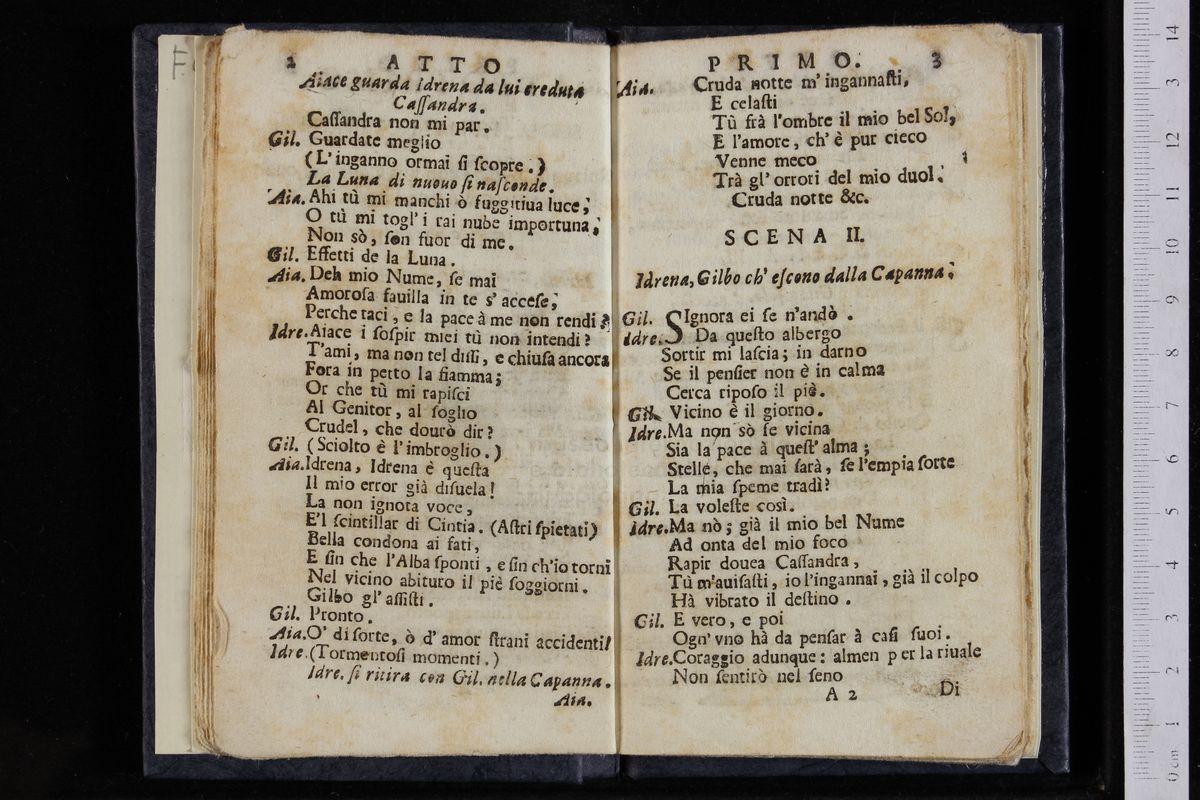 2 ATTO
Aiace guarda Idrena da lui creduta
Caſſandra.
Caſſandra non mi par.
Gil. Guardate meglio
(L'inganno ormai ſi ſcopre.)
La Luna di nuouo ſi naſconde.
Aia. Ahi tù mi manchi ò fuggitiua luce;
O tù mi togl' i rai nube importuna;
Non sò, ſon fuor di me.
Gil. Effetti de la Luna.
Aia. Deh mio Nume, ſe mai
Amoroſa fauilla in te s'acceſe;
Perche taci, e la pace à me non rendi?
Idre. Aiace i ſoſpir miei tù non intendi?
T'ami, ma non tel diſſi, e chiuſa ancora
Fora in petto la fiamma;
Or che tù mi rapiſci
Al Genitor, al ſoglio
Crudel, che dourò dir?
Gil. (Sciolto è l'imbroglio.)
Aia. Idrena, Idrena è queſta
Il mio error già diſuela!
La non ignota voce,
E'l ſcintillar di Cintia. (Aſtri ſpietati)
Bella condona ai fati,
E ſin che l'Alba ſponti, e ſin ch'io torni
Nel vicino abituro il piè ſoggiorni.
Gilbo gl'aſſiſti.
Gil. Pronto.
Aia. O' di ſorte, ò d'amor ſtrani accidenti!
Idre. (Tormentoſi momenti.)
Idre. ſi ritira con Gil. nella Capanna.
Aia.
PRIMO. 3
Aia. Cruda notte m'ingannaſti,
E celaſti
Tù frà l'ombre il mio bel Sol,
E l'amore, ch'è pur cieco
Venne meco
Trà gl'orrori del mio duol.
Cruda notte &c.
SCENA II.
Idrena, Gilbo ch'eſcono dalla Capanna.
Gil. SIgnora ei ſe n'andò.
Idre. Da queſto albergo
Sortir mi laſcia; in darno
Se il penſier non è in calma
Cerca ripoſo il piè.
Gil. Vicino è il giorno.
Idre. Ma non sò ſe vicina
Sia la pace à queſt'alma;
Stelle, che mai ſarà, ſe l'empia ſorte
La mia ſpeme tradì?
Gil. La voleſte così.
Idre. Ma nò; già il mio bel Nume
Ad onta del mio foco
Rapir douea Caſſandra,
Tù m'auiſaſti, io l'ingannai, già il colpo
Hà vibrato il deſtino.
Gil. E vero, e poi
Ogn'vno hà da penſar à caſi ſuoi.
Idre. Coraggio adunque: almen per la riuale
Non ſentirò nel ſeno
A 2 Di
0 cm 1 2 3 4 5 6 7 8 9 10 11 12 3 14